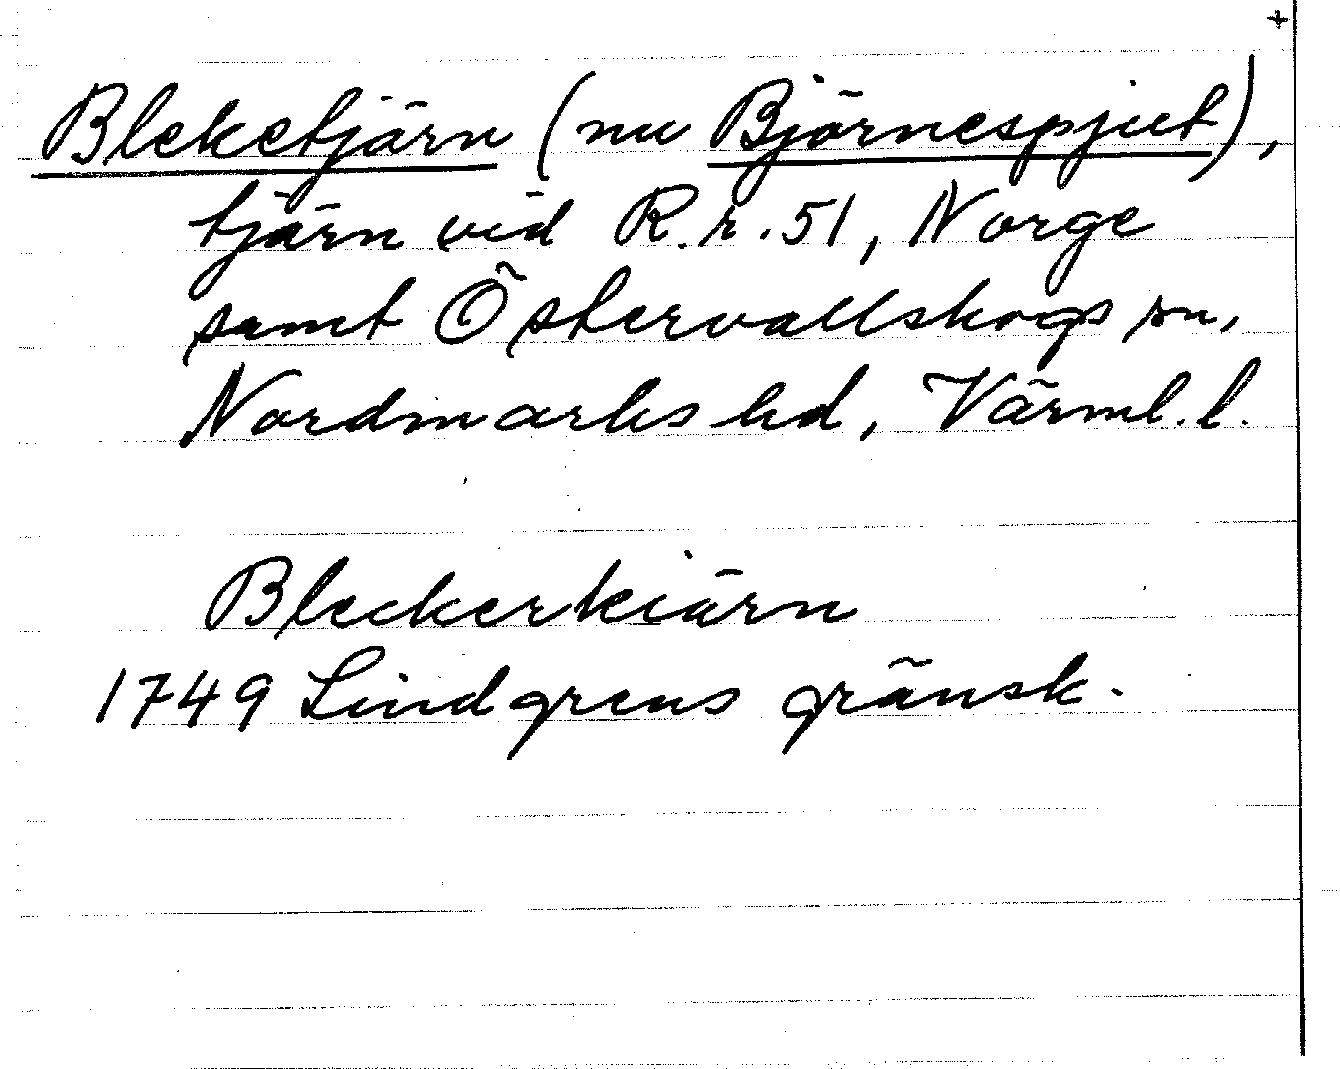 +
Bleketjärn (nu Björnespjut),
tjärn vid R.r. 51, Norge
samt Östervallskogs sn,
Nordmarks hd, Värml. l.
Bleckerkiärn
1749 Lindgrens gränsk.